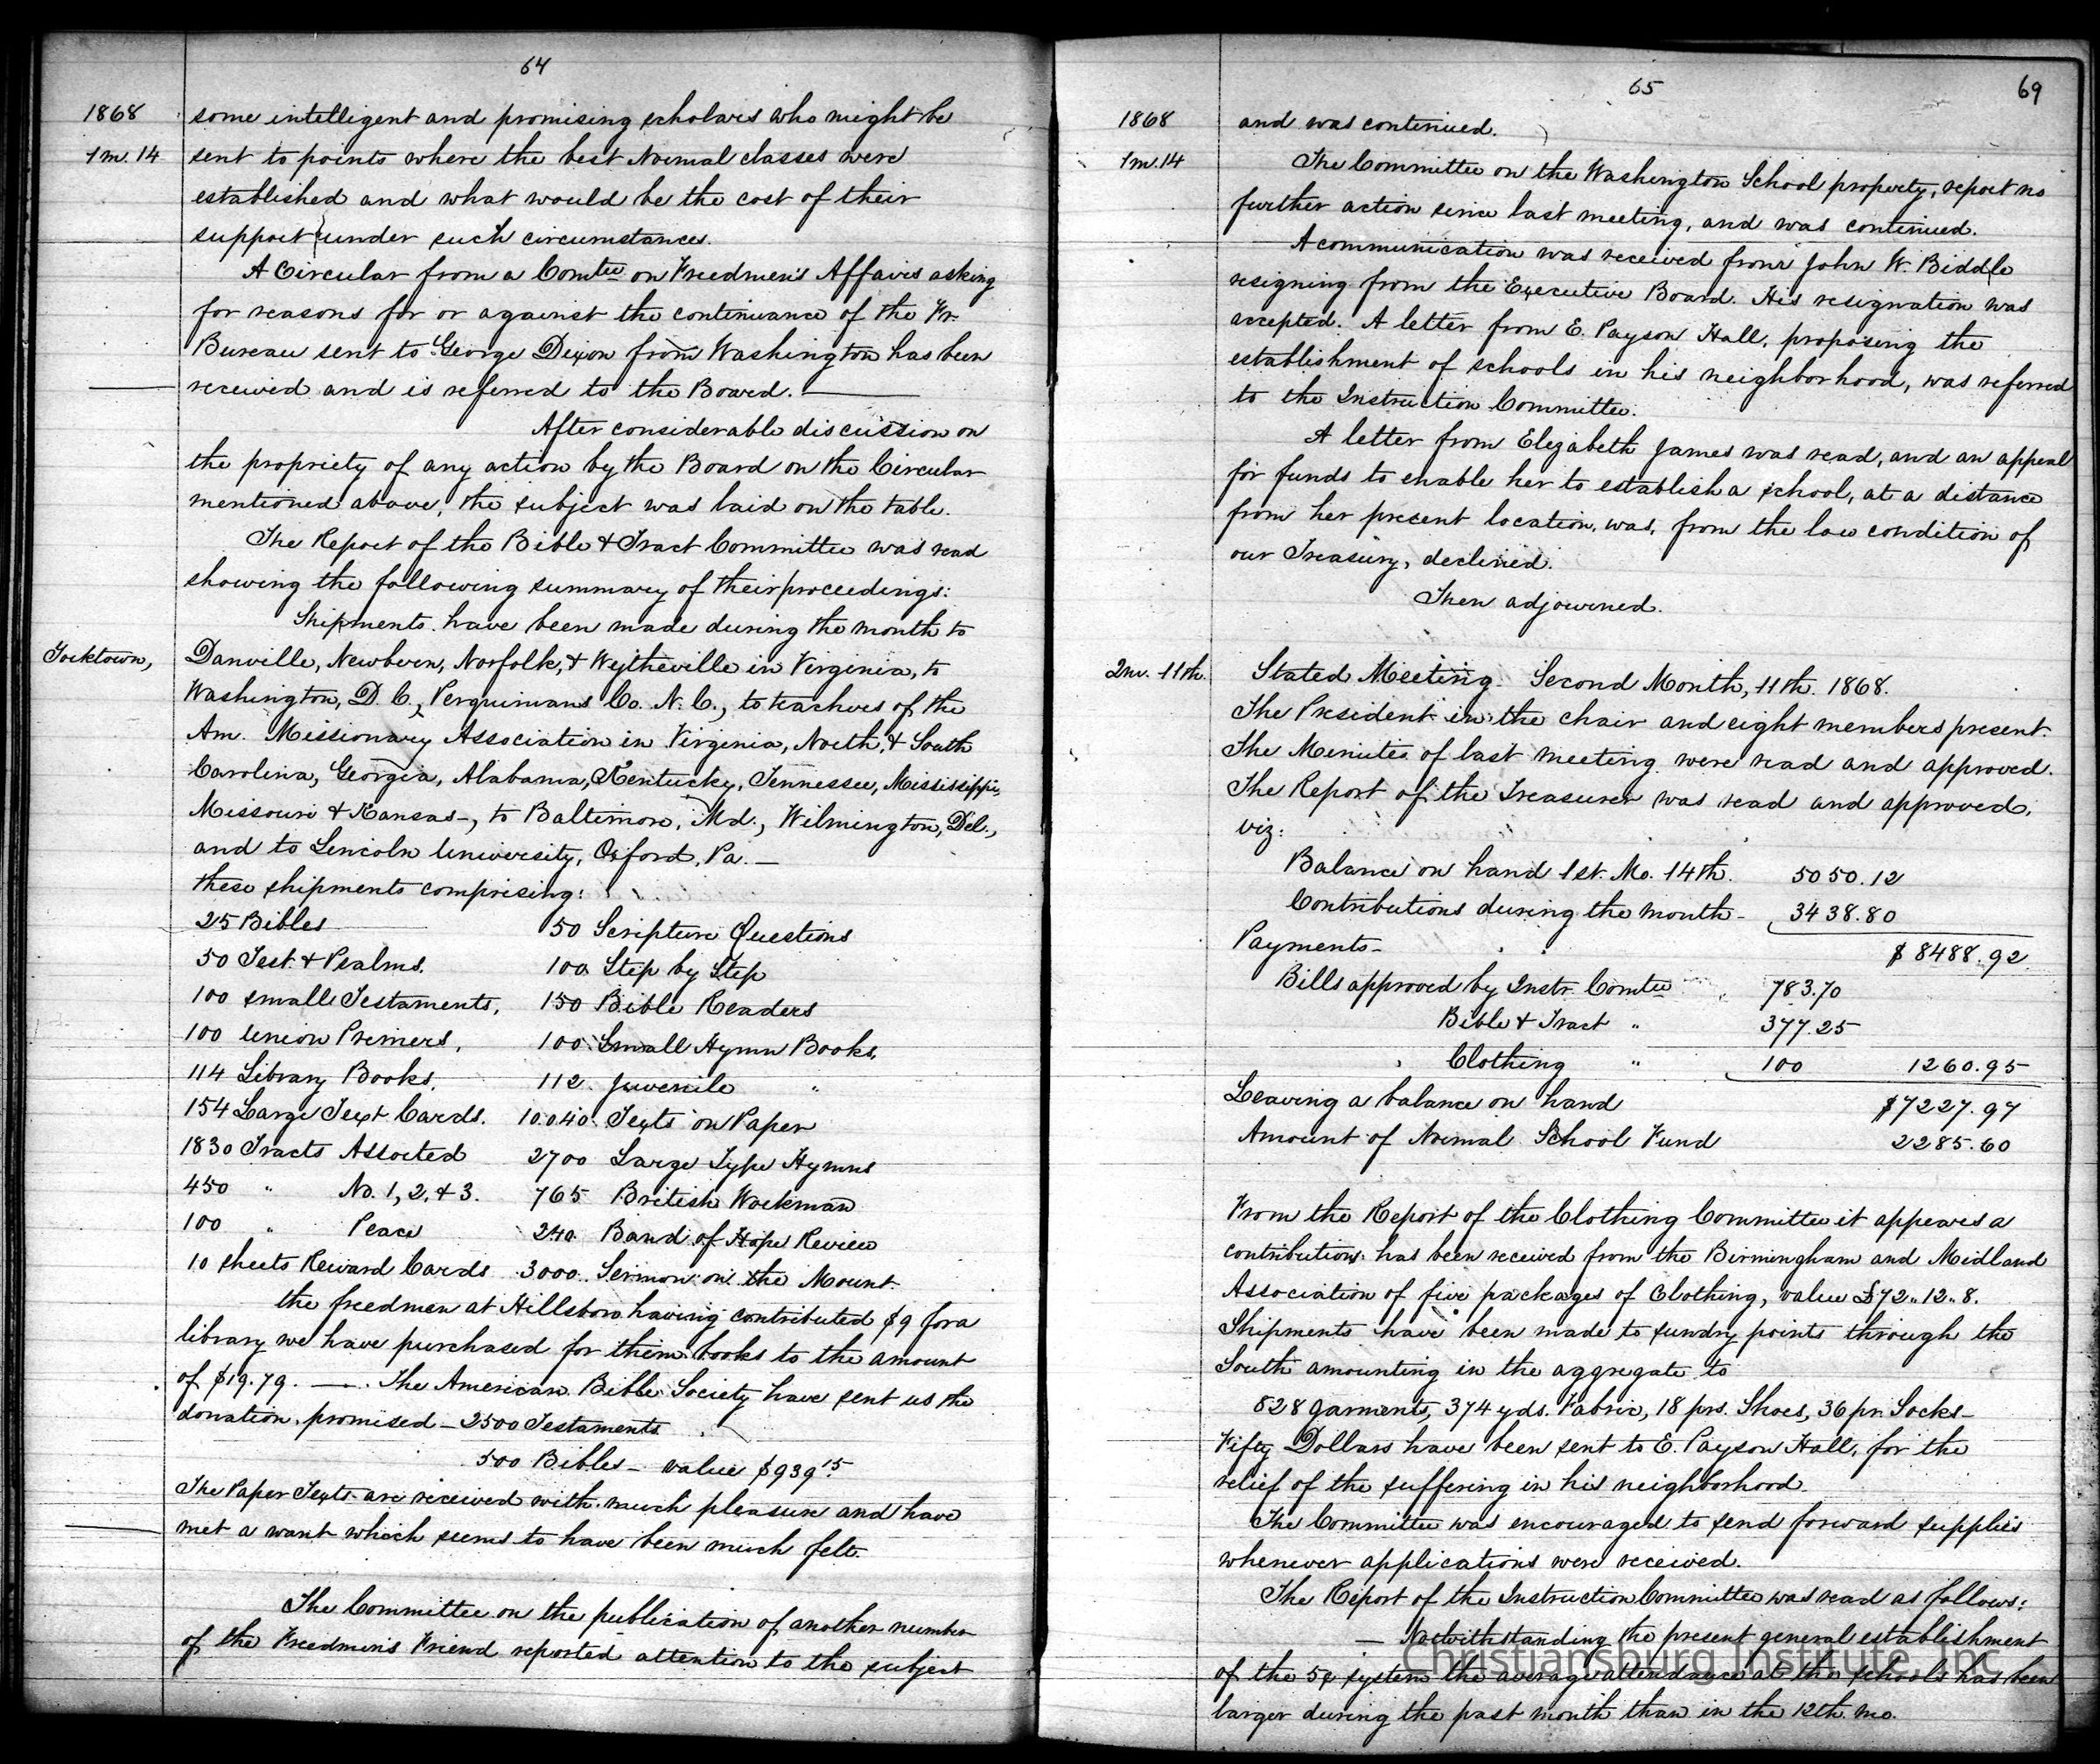 64
1868 some intelligent and promising scholars who might be
1m. 14 sent to points where the best Normal classes were
established and what would be the cost of their
support under such circumstances.
A Circular from a Comtee on Freedmen's Affairs asking
for reasons for or against the continuance of the Fr.
Bureau sent to George Dixon from Washington has been
received and is referred to the Board.
After considerable discussion on
the propriety of any action by the Board on the Circular
mentioned above, the subject was laid on the table.
The Report of the Bible & Tract Committee was read
showing the following summary of their proceedings:
Shipments have been made during the month to
Yorktown, Danville, Newbern, Norfolk, & Wytheville in Virginia, to
Washington, D. C., Perquimans Co. N. C., to teachers of the
Am. Missionary Association in Virginia, North, & South
Carolina, Georgia, Alabama, Kentucky, Tennessee, Mississippi,
Missouri & Kansas-, to Baltimore, Md., Wilmington, Del.,
and to Lincoln University, Oxford, Pa. —
these shipments comprising:
25 Bibles 50 Scripture Questions
50 Test. & Psalms. 100 Step by Step
100 small Testaments, 150 Bible Readers
100 Union Primers, 100 Small Hymn Books,
114 Library Books, 112 Juvenile "
154 Large Text Cards. 10.040. Texts on Paper
1830 Tracts Assorted 2700 Large Type Hymns
450 " No. 1, 2, & 3. 765 British Workman
100 " Peace 240 Band of Hope Review
10 sheets Reward Cards 3000 Sermon on the Mount.
the freedmen at Hillsboro having contributed $9 for a
library we have purchased for them books to the amount
of $19.79. —. The American Bible Society have sent us the
donation promised – 2500 Testaments
500 Bibles – value $939 15.
The Paper Texts are received with much pleasure and have
met a want which seems to have been much felt.
The Committee on the publication of another number
of the Freedmen's Friend reported attention to the subject
65
69
1868 and was continued.
1m. 14 The Committee on the Washington School property, report no
further action since last meeting, and was continued.
A communication was received from John W. Biddle
resigning from the Executive Board. His resignation was
accepted. A letter from E. Payson Hall, proposing the
establishment of schools in his neighborhood, was referred
to the Instruction Committee.
A letter from Elizabeth James was read, and an appeal
for funds to enable her to establish a school, at a distance
from her present location, was, from the low condition of
our Treasury, declined.
Then adjourned.
2m. 11th. Stated Meeting. Second Month, 11th. 1868.
The President in the chair and eight members present.
The Minutes of last meeting were read and approved.
The Report of the Treasurer was read and approved,
viz:
Balance on hand 1st. Mo. 14th. 5050.12
Contributions during the month – 3438.80
Payments – $ 8488.92
Bills approved by Instr. Comtee 783.70
Bible & Tract " 377.25
Clothing " 100 1260.95
Leaving a balance on hand $7227.97
Amount of Normal School Fund 2285.60
From the Report of the Clothing Committee it appears a
contribution has been received from the Birmingham and Midland
Association of five packages of Clothing, value £72..12..8.
Shipments have been made to sundry points through the
South amounting in the aggregate to
828 garments, 374 yds. Fabric, 18 prs. Shoes, 36 pr. Socks –
Fifty Dollars have been sent to E. Payson Hall, for the
relief of the suffering in his neighborhood.
The Committee was encouraged to send forward supplies
whenever applications were received.
The Report of the Instruction Committee was read as follows:
— Notwithstanding the present general establishment
of the 5¢ system the average attendance at the schools has been
larger during the past month than in the 12th. mo.
Christiansburg Institute, Inc